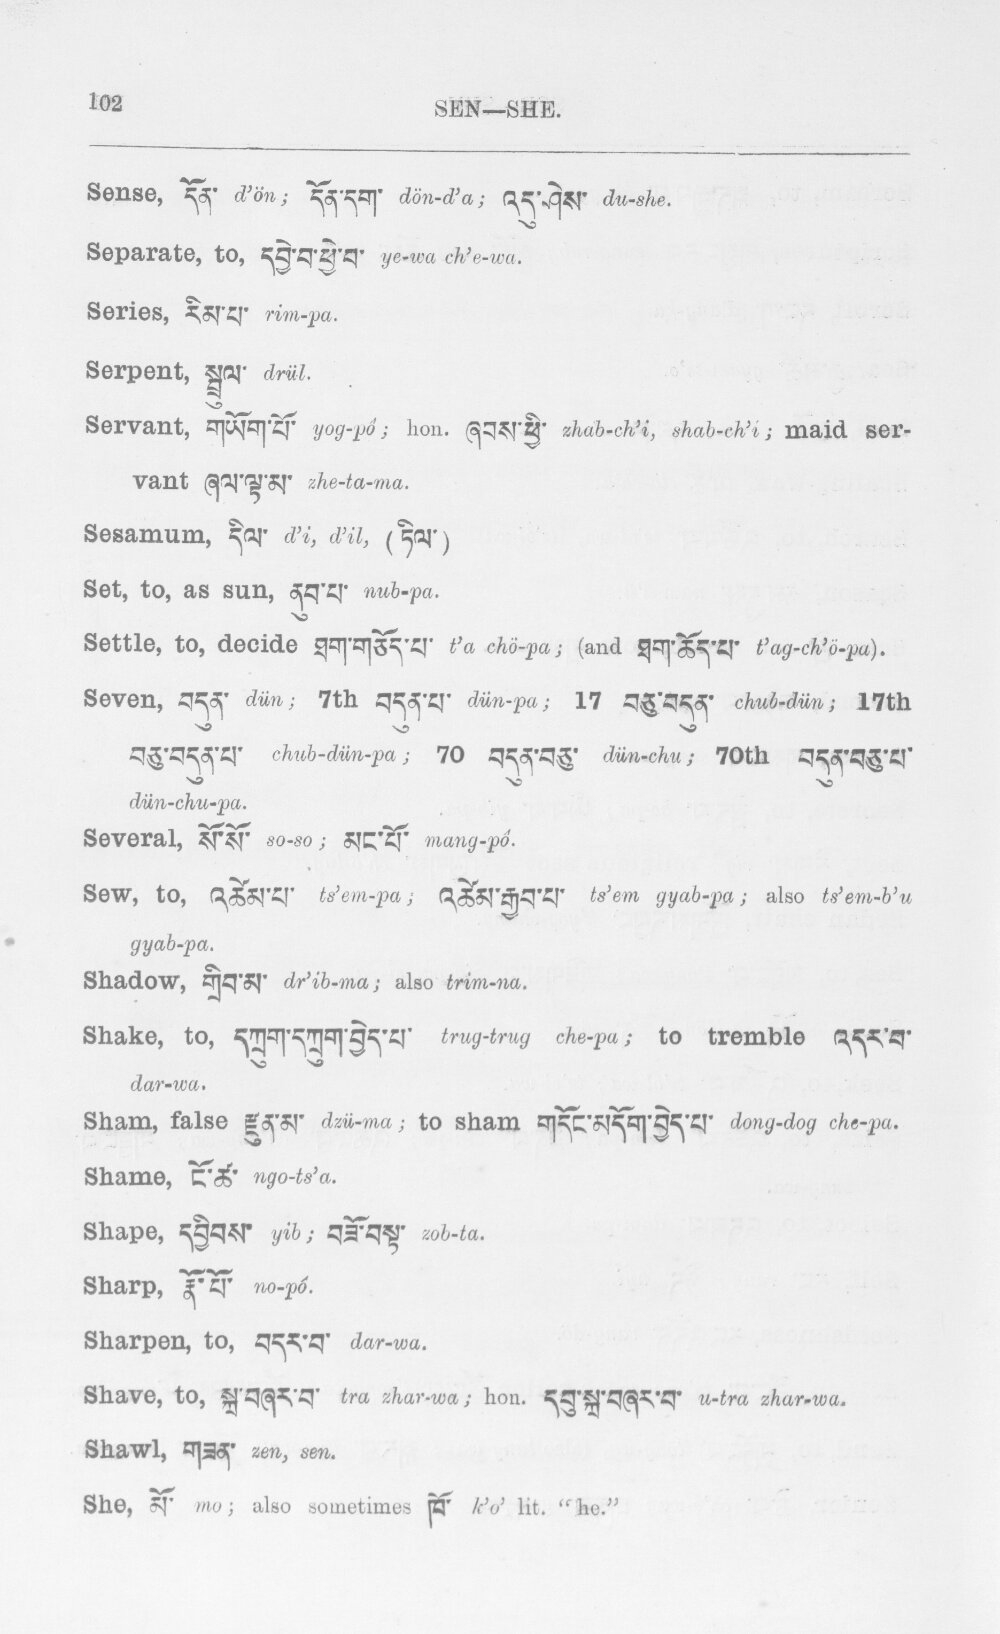 102
SEN—SHE.
Sense, དོན་ d’ön; དོན་དག་ dön-d’a; འདུ་ཤེས་ du-she.
Separate, to, དབྱེ་བ་ཕྱེ་བ་ ye-wa ch’e-wa.
Series, རིམ་པ་ rim-pa.
Serpent, སྦྲུལ་ drül.
Servant, གཡོག་པོ་ yog-pó; hon. ཞབས་ཕྱི་ zhab-ch’i, shab-ch’i; maid ser-
vant ཞལ་ལྟ་མ་ zhe-ta-ma.
Sesamum, དིལ་ d’i, d’il, (ཏིལ་)
Set, to, as sun, ནུབ་པ་ nub-pa.
Settle, to, decide ཐག་གཅོད་པ་ t’a chö-pa; (and ཐག་ཆོད་པ་ t’ag-ch’ö-pa).
Seven, བདུན་ dün; 7th བདུན་པ་ dün-pa; 17 བཅུ་བདུན་ chub-dün; 17th
བཅུ་བདུན་པ་ chub-dün-pa; 70 བདུན་བཅུ་ dün-chu; 70th བདུན་བཅུ་པ་
dün-chu-pa.
Several, སོ་སོ་ so-so; མང་པོ་ mang-pó.
Sew, to, འཚེམ་པ་ ts’em-pa; འཚེམ་རྒྱབ་པ་ ts’em gyab-pa; also ts’em-b’u
gyab-pa.
Shadow, གྲིབ་མ་ dr’ib-ma; also trim-na.
Shake, to, དཀྲུག་དཀྲུག་བྱེད་པ་ trug-trug che-pa; to tremble འདར་བ་
dar-wa.
Sham, false རྫུན་མ་ dzü-ma; to sham གདོང་མདོག་བྱེད་པ་ dong-dog che-pa.
Shame, ངོ་ཚ་ ngo-ts’a.
Shape, དབྱིབས་ yib; བཟོ་བསྟ་ zob-ta.
Sharp, རྣོ་པོ་ no-pó.
Sharpen, to, བདར་བ་ dar-wa.
Shave, to, སྐྲ་བཞར་བ་ tra zhar-wa; hon. དབུ་སྐྲ་བཞར་བ་ u-tra zhar-wa.
Shawl, གཟན་ zen, sen.
She, མོ་ mo; also sometimes ཁོ་ k’o’ lit. “he.”